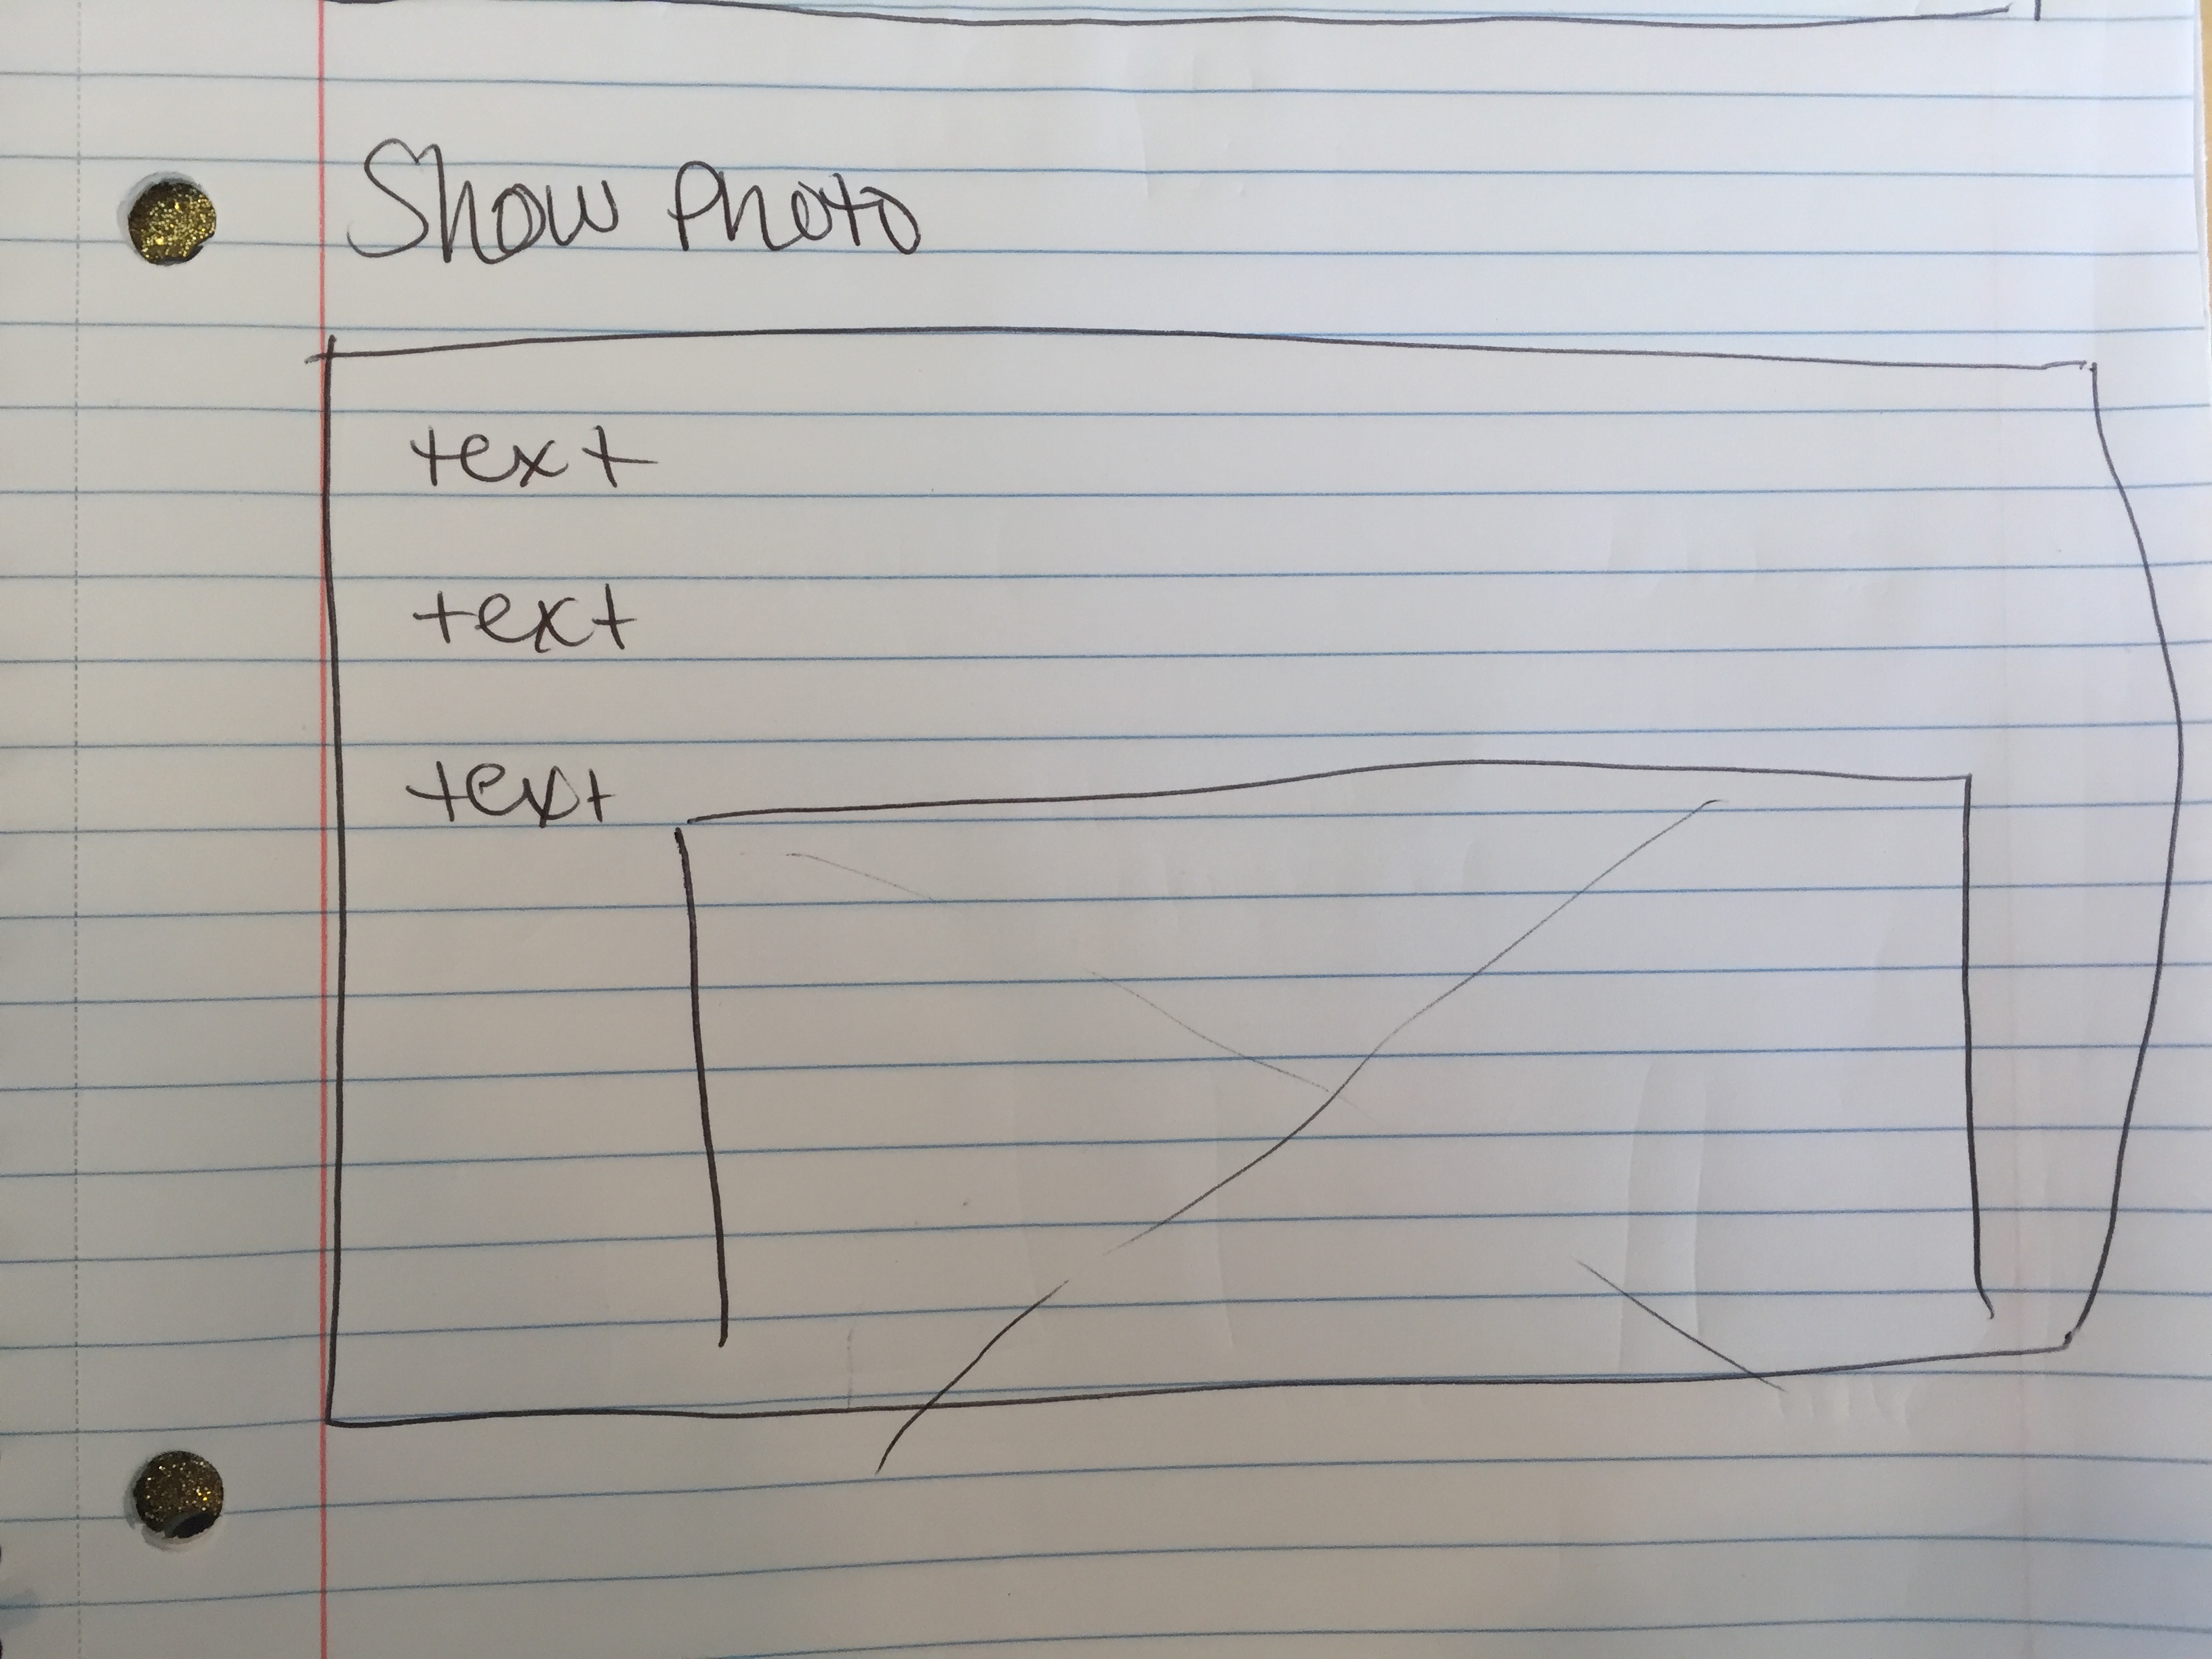 Show Photo
text
text
text